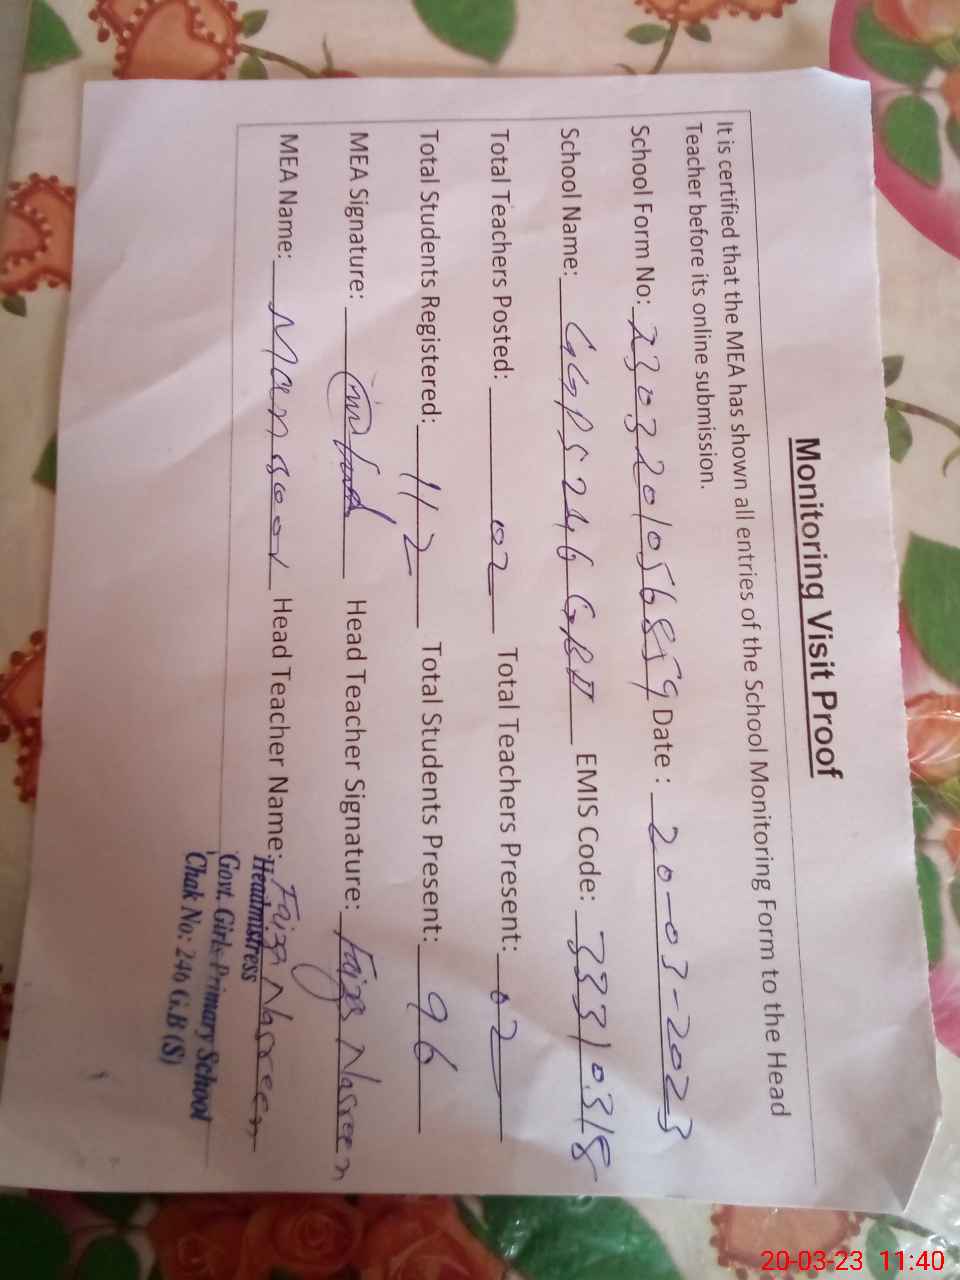 Monitoring Visit Proof
It is certified that the MEA has shown all entries of the School Monitoring Form to the Head
Teacher before its online submission.
School Form No: 2303201056859 Date : 20-03-2023
School Name: GGPS 246 GB II EMIS Code: 33310318
Total Teachers Posted: 02 Total Teachers Present: 02
Total Students Registered: 112 Total Students Present: 96
MEA Signature: Head Teacher Signature: Faiza Nasreen
MEA Name: Mansoor Head Teacher Name: Faiza Nasreen
Headmistress
Govt. Girls Primary School
Chak No: 246 G.B (S)
20-03-23 11:40